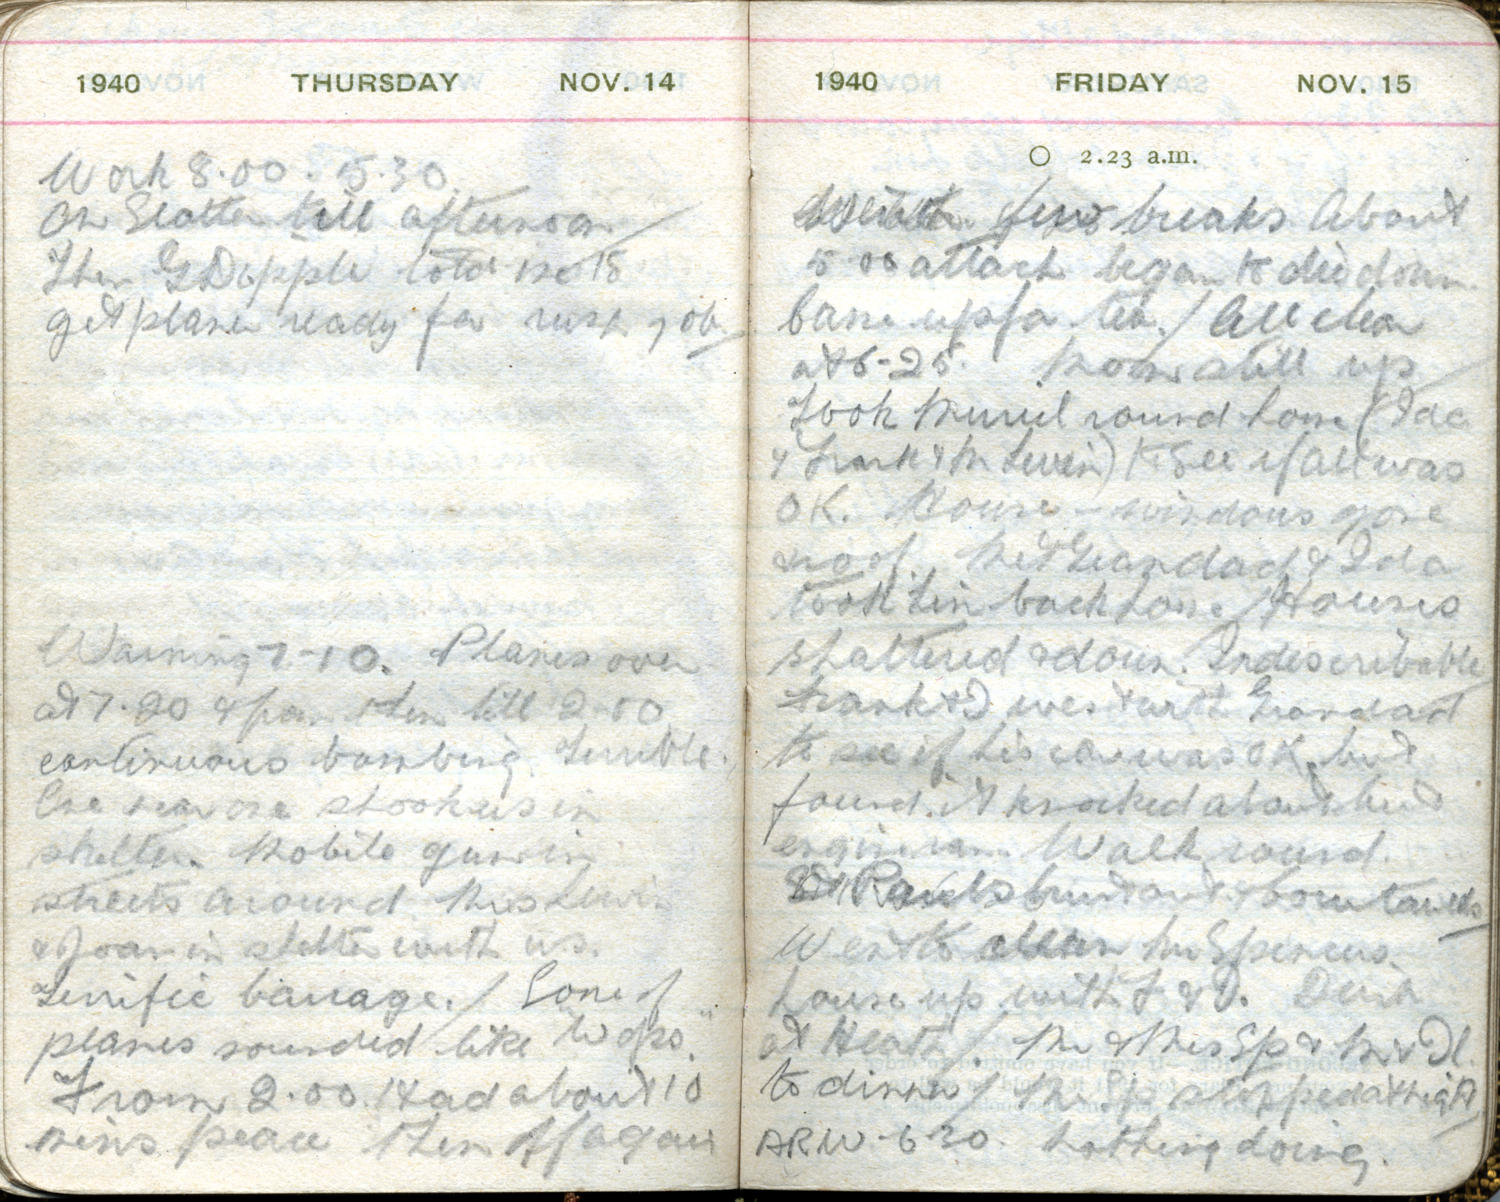 1940 THURSDAY NOV. 14
Work 8.00 . 5.30.
On Slotter till afternoon
Then G Dipple told me to
get plane ready for rush job
Warning 7-10. Planes over
at 7.20 & from then till 2.00
continuous bombing. Terrible.
One near one shook us in
shelter. Mobile guns in
streets around. Mrs Lewin
& Joan in shelter with us.
Terrific barrage. / Some of
planes sounded like "Wops".
From 2.00. Had about 10
mins peace then off again
1940 FRIDAY NOV. 15
2.23 a.m.
few breaks About
5.00 attack began to die down.
Came up for tea. / All clear
at 6-25. Moon still up
Took Muriel round home (Ida
& Frank & Mr Lewin) to see if all was
OK. House - windows gone
& roof. Met Grandad & Ida
took him back home / Houses
shattered & down. Indescribable
Frank & I went with Grandad
to see if his car was OK, but
found it knocked about but
engine ran. Walk round.
burnt out & town towards
Went to clean Mr Spencers
house up with F & D.
at Heath / Mr & Mrs Sp & Mr & Dl.
to dinner / Mr Sp stopped at night
ARW 6 30. Nothing doing.